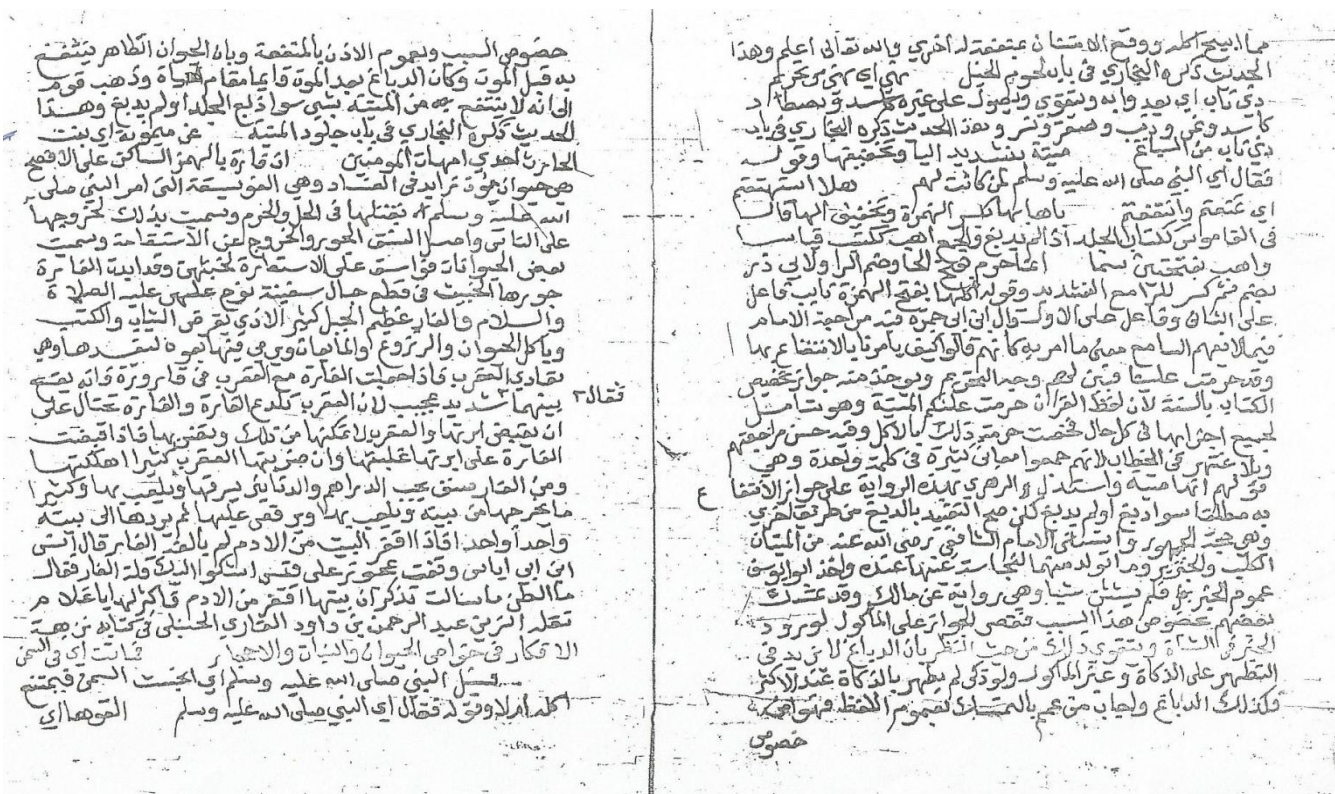 مما ابيح اكله ووقع الامتنان بمنفعة له اخري والله تعالى اعلم وهذا
الحديث ذكره البخاري في باب لحوم الخيل نهي اي نهي تحريم
ذي ناب اي يعدو به ويتقوي ويصول على غيره كاسد ويصطاد
كاسد ونمر وذيب وصقر ونسر وهذا الحديث ذكره البخاري في باب
ذي ناب من السباع ميتة بتشديد اليا وتخفيفها وقوله
فقال اي النبي صلى الله عليه وسلم لمن كانت لهم هلا استمتعتم
اي تمتعتم وانتفعتم باهابها بكسر الهمزة وتخفيف الها قال
في القاموس ككتاب الجلد اذا لم يدبغ والجمع اهب ككتب قياسا
واهب بفتحتين سماعا انما حرم بفتح الحا وضم الرا ولابي ذر
بضم فكسر للرا مع التشديد وقوله اكلها بفتح الهمزة نايب فاعل
على الثاني وفاعل على الاول قال ابن ابي جمرة فيه مراجعة الامام
فيما لا يفهم السامع معنى ما امر به كانهم قالوا كيف يامرنا بالانتفاع بها
وقد حرمت علينا فبين لهم وجه التحريم ويوخذ منه جواز تخصيص
الكتاب بالسنة لان لفظ القران حرمت عليكم الميتة وهو شامل
لجميع اجزايها في كل حال فخصت حرمة ذلك بالاكل وفيه حسن مراجعتهم
وبلاغتهم في الخطاب لانهم جمعوا معاني كثيرة في كلمة واحدة وهي
قولهم انها ميتة واستدل الزهري بهذه الرواية على جواز الانتفا
ع
به مطلقا سوا دبغ او لم يدبغ لكن صح التقييد بالدبغ من طريق اخري
وهي حجة الجمهور واستثنى الامام الشافعي رضي الله عنه من الميتات
الكلب والخنزير وما تولد منهما لنجاسة عينها عنده واخذ ابو يوسف
عموم الخبر فلم يستثن شيا وهي رواية عن مالك وقد تمسك
بعضهم بخصوص هذا السبب فقصر الجواز على الماكول لورود
الخبر في الشاة ويتقوي ذلك من حيث النظر بان الدباغ لا يزيد في
التطهير على الذكاة وغير الماكول لو ذكي لم يطهر بالذكاة عند الاكثر
فكذلك الدباغ واجاب من عمم بالتمسك بعموم اللفظ فهو اولى من
خصوص
خصوص السبب وبعموم الاذن بالمنفعة وبان الحيوان الطاهر ينتفع
به قبل الموت وكان الدباغ بعد الموت قايما مقام الحياة وذهب قوم
الى انه لا ينتفع من الميتة بشي سوا دبغ الجلد او لم يدبغ وهذا
الحديث ذكره البخاري في باب جلود الميتة عن ميمونة اي بنت
الحارث احدي امهات المومنين ان فارة بالهمز الساكن على الافصح
هي حيوان موذ زايد في الفساد وهي الفويسقة التي امر النبي صلى
الله عليه وسلم بقتلها في الحل والحرم وسميت بذلك لخروجها
على الناس واصل الفسق الجور والخروج عن الاستقامة وسميت
بعض الحيوانات فواسق على الاستعارة لخبثهن وقد ابدت الفارة
جورها الخبيث في قطع حبال سفينة نوح عليه الصلاة
والسلام والفار عظيم الحيل كثير الاذي يقرض الثياب والكتب
وياكل الحيوان والزروع والمايعات ويرمي فيها بعره ليفسدها وهي
تعادي العقرب فاذا جعلت الفارة مع العقرب في قارورة فانه يقع
فقال
بينهما شديد عجيب لان العقرب تلدغ الفارة والفارة تحتال على
ان تقبض ابرتها والعقرب لا تمكنها من ذلك وتضربها فاذا قبضت
الفارة على ابرتها غلبتها وان ضربتها العقرب كثيرا اهلكتها
ومن الفار صنف يحب الدراهم والدنانير يسرقها ويلعب بها وكثيرا
ما يخرجها من بيته ويلعب بها ويرقص عليها ثم يردها الى بيته
واحدا واحدا فاذا افتقر البيت من الادم لم يالفه الفار قال انس
ابن ابي اياس وقفت عجوز على قيس اشكوا اليك قلة الفار فقال
ما الطف ما سالت تذكر ان بيتها افتقر من الادم فاكثر لها يا غلام
نقله الزين عبد الرحمن بن داود القاري الحنبلي في كتابه نزهة
الافكار في خواص الحيوان والنبات والاحجار فماتت اي في السمن
سئل النبي صلى الله عليه وسلم اي السمن فيمتنع
اكله ام لا وقوله فقال اي النبي صلى الله عليه وسلم القوها اي